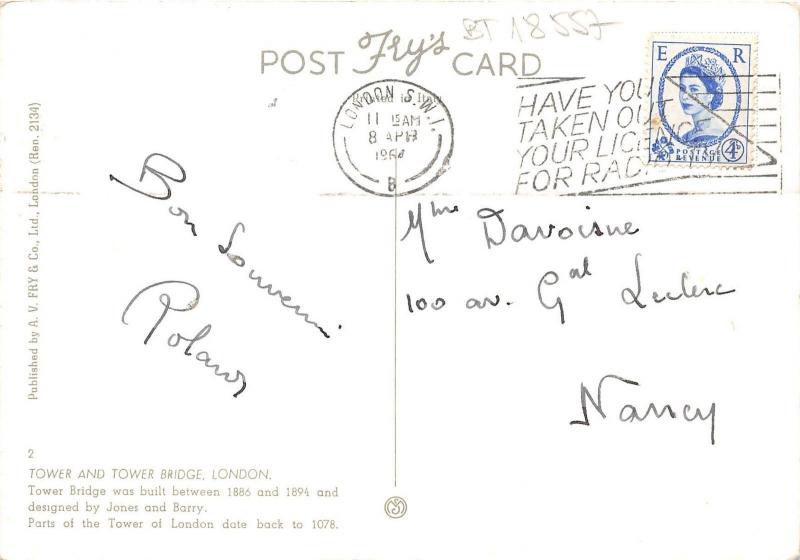 BT 18557
POST Fry's CARD
Printed in Italy
E R
POSTAGE
REVENUE
4D
LONDON S.W.1.
11 15 AM
8 APR
B
HAVE YOU
TAKEN OUT
YOUR LICENCE
FOR RADIO
Published by A. V. FRY & Co., Ltd., London (Ren. 2134)
Bon Souvenir
Roland
Mme Davoisne
100 av. Gal Leclerc
Nancy
2
TOWER AND TOWER BRIDGE, LONDON.
Tower Bridge was built between 1886 and 1894 and
designed by Jones and Barry.
Parts of the Tower of London date back to 1078.